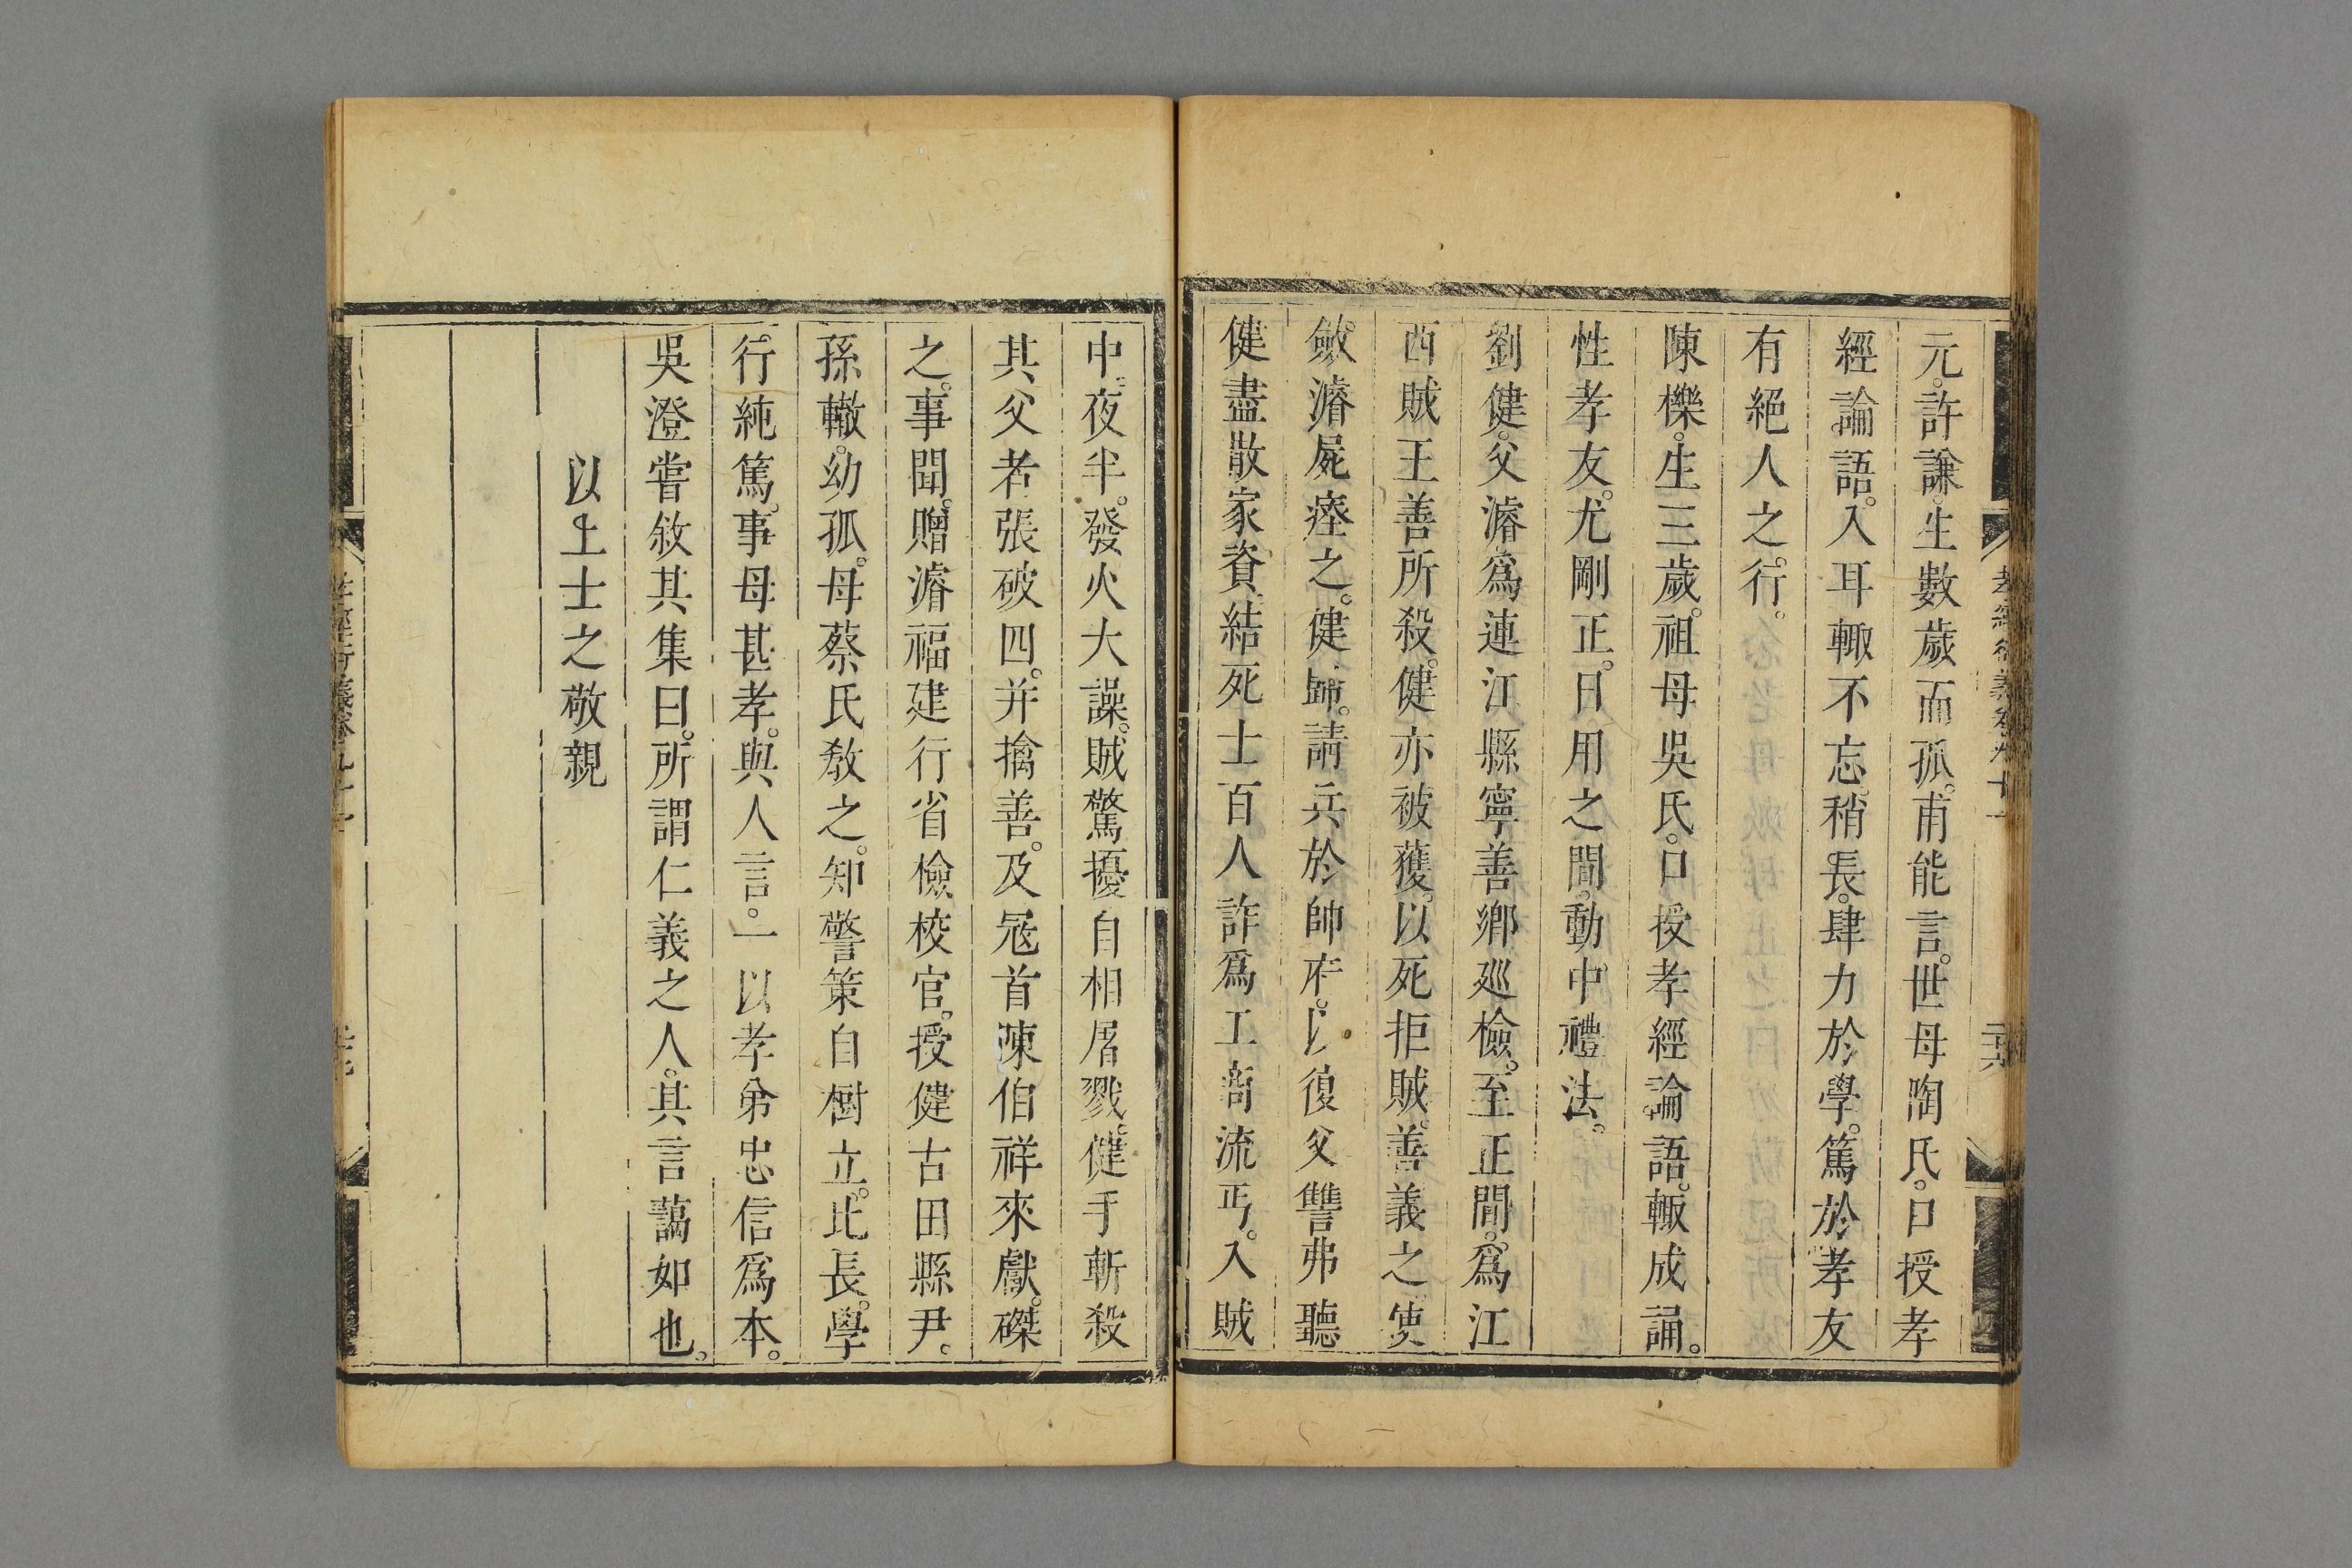 元。許謙。生數歲而孤。甫能言。世母陶氏。口授孝
經論語。入耳輙不忘。稍長。肆力於學。篤於孝友
有絕人之行。
陳櫟。生三歲。祖母吳氏。口授孝經論語。輙成誦。
性孝友。尤剛正。日用之間。動中禮法。
劉健。父濬。爲連江縣寧善鄉廵檢。至正間。爲江
西賊王善所殺。健亦被獲。以死拒賊。善義之。使
斂濬屍瘞之。健歸。請兵於帥府。以復父讐。弗聽
健盡散家資。結死士百人。詐爲工商流丐。入賊
中。夜半。發火大譟。賊驚擾自相屠戮。健手斬殺
其父者張破四。并擒善。及冦首陳伯祥來獻。磔
之。事聞。贈濬福建行省檢校官。授健古田縣尹。
孫轍。幼孤。母蔡氏教之。知警策自樹立。比長。學
行純篤。事母甚孝。與人言。一以孝弟忠信爲本。
吳澄嘗敘其集曰。所謂仁義之人。其言藹如也。
以上士之敬親
孝經衍義卷九十一